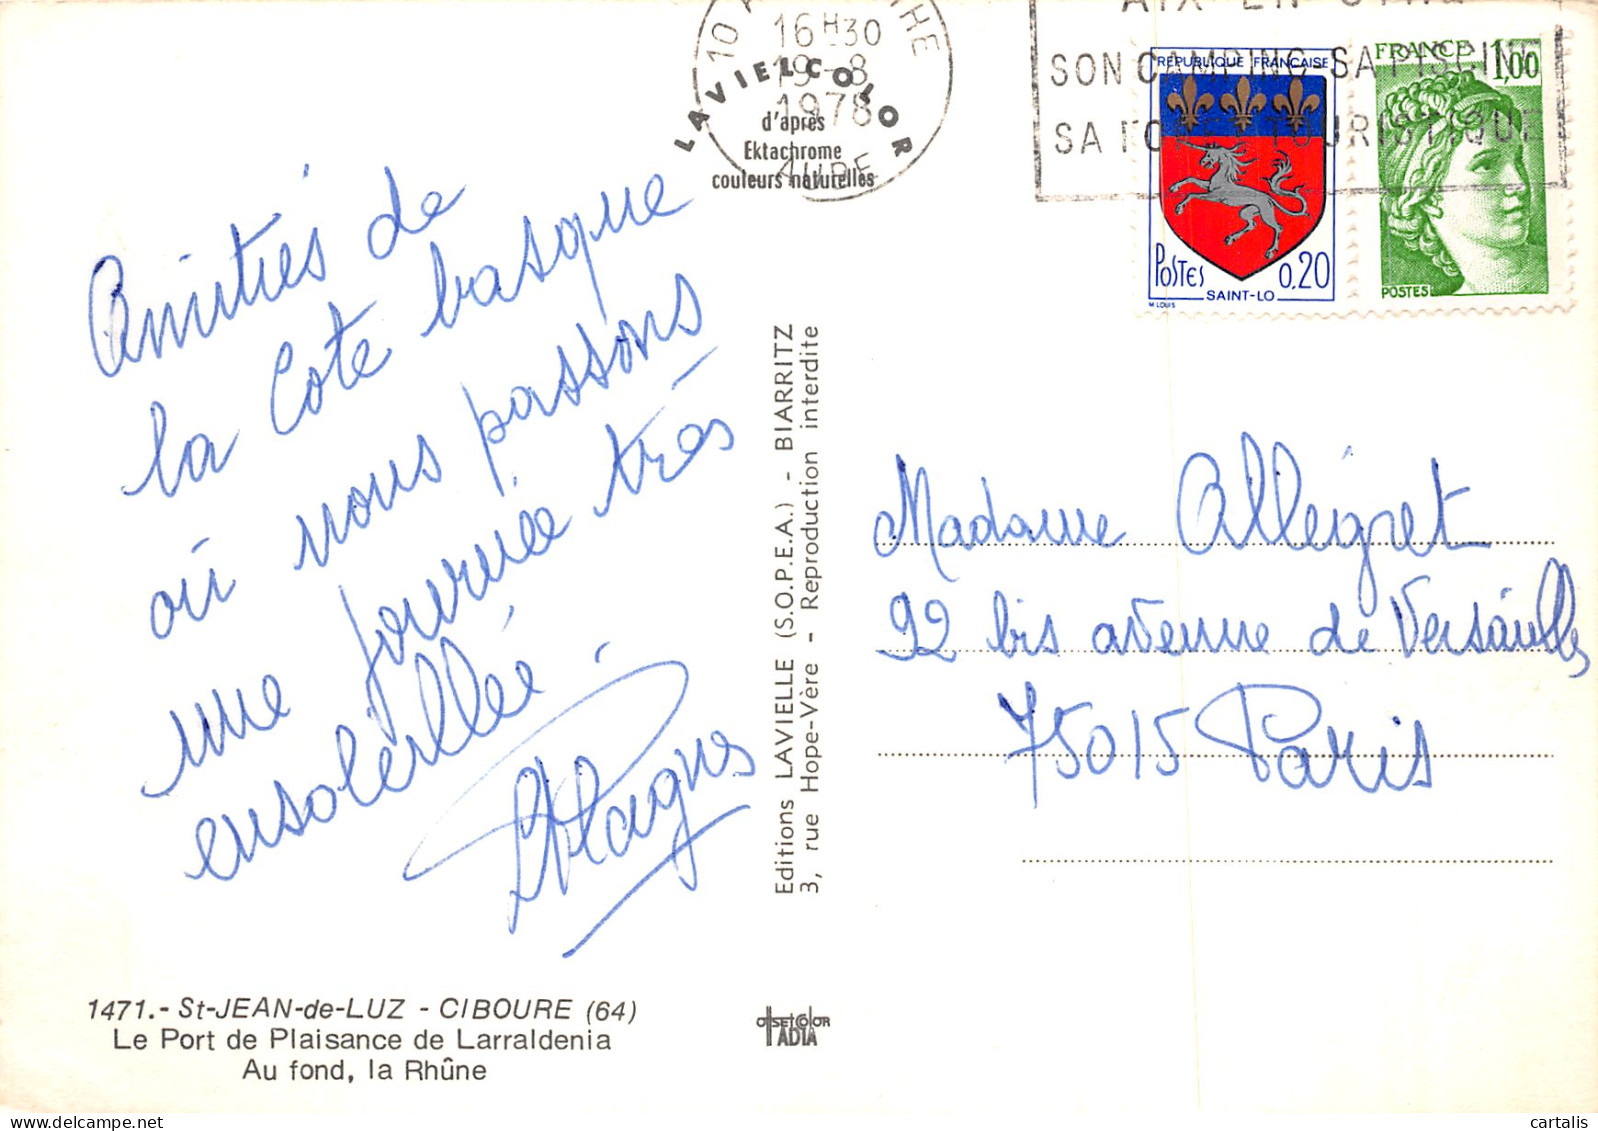 Amitiés de
la Cote basque
où nous passons
une journée très
ensoleillée.
1471.- St-JEAN-de-LUZ - CIBOURE (64)
Le Port de Plaisance de Larraldenia
Au fond, la Rhûne
LAVIELCOLOR
d'après
Ektachrome
couleurs naturelles
16H30
19-8
1978
AUBE
Editions LAVIELLE (S.O.P.E.A.) - BIARRITZ
3, rue Hope-Vère - Reproduction interdite
OFFSETCOLOR
IADIA
AIX EN OTHE
SON CAMPING SA PISCINE
SA FORET TOURISTIQUE
REPUBLIQUE FRANCAISE
POSTES 0,20
SAINT-LO
M. LOUIS
FRANCE 1,00
POSTES
Madame Allégret
92 bis avenue de Versailles
75015 Paris
cartalis
cartalis.delcampe.net